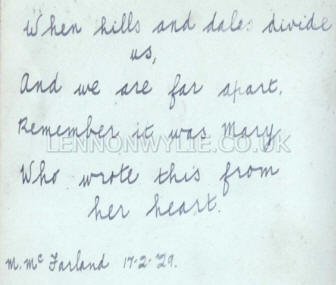 When hills and dales divide
us,
And we are far apart.
Remember it was Mary
LENNONWYLIE.CO.UK
Who wrote this from
her heart.
M. McFarland 17-2-'29.